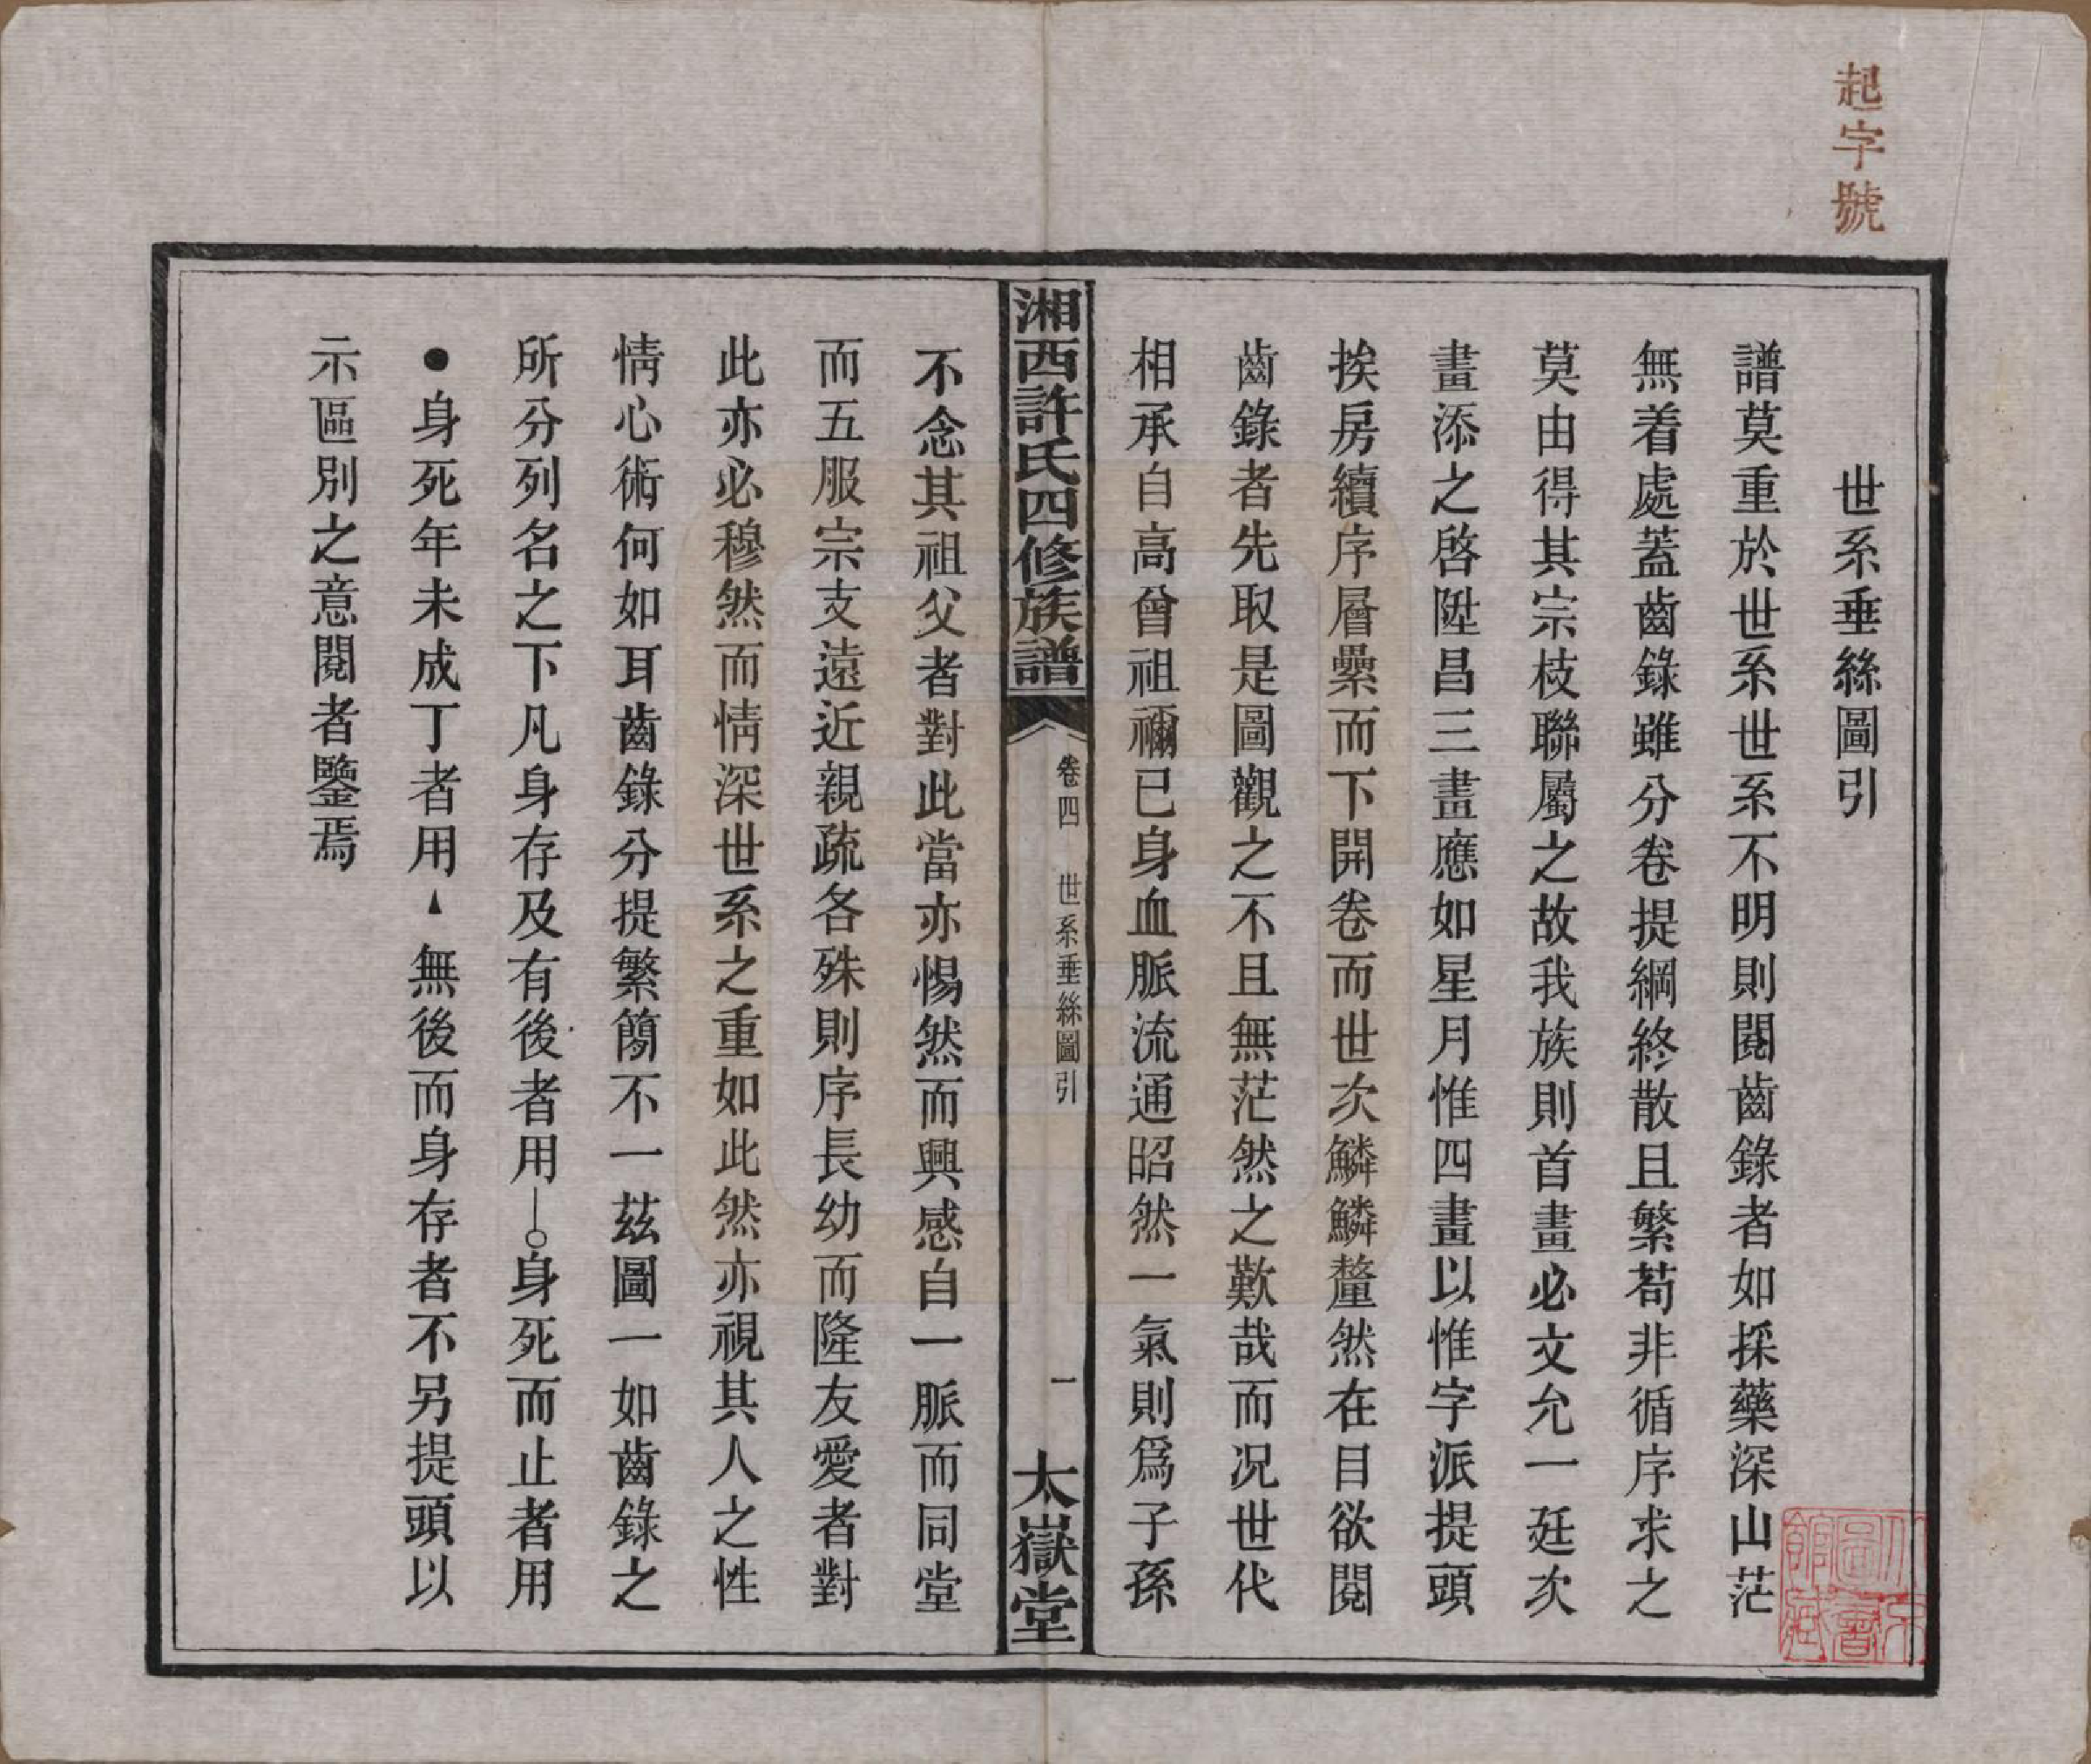 起字號
世系垂絲圖引
譜莫重於世系世系不明則閱齒錄者如採藥深山茫
無着處蓋齒錄雖分卷提綱終散且繁茍非循序求之
莫由得其宗枝聯屬之故我族則首畫必文允一廷次
畫添之啓陞昌三畫應如星月惟四畫以惟字派提頭
挨房續序層纍而下開卷而世次鱗鱗釐然在目欲閱
齒錄者先取是圖觀之不且無茫然之歎哉而况世代
相承自高曾祖禰已身血脈流通昭然一氣則爲子孫
湘西許氏四修族譜
卷四 世系垂絲圖引
一
太嶽堂
不念其祖父者對此當亦惕然而興感自一脈而同堂
而五服宗支遠近親疏各殊則序長幼而隆友愛者對
此亦必穆然而情深世系之重如此然亦視其人之性
情心術何如耳齒錄分提繁簡不一茲圖一如齒錄之
所分列名之下凡身存及有後者用—○身死而止者用
●身死年未成丁者用▲無後而身存者不另提頭以
示區別之意閱者鑒焉